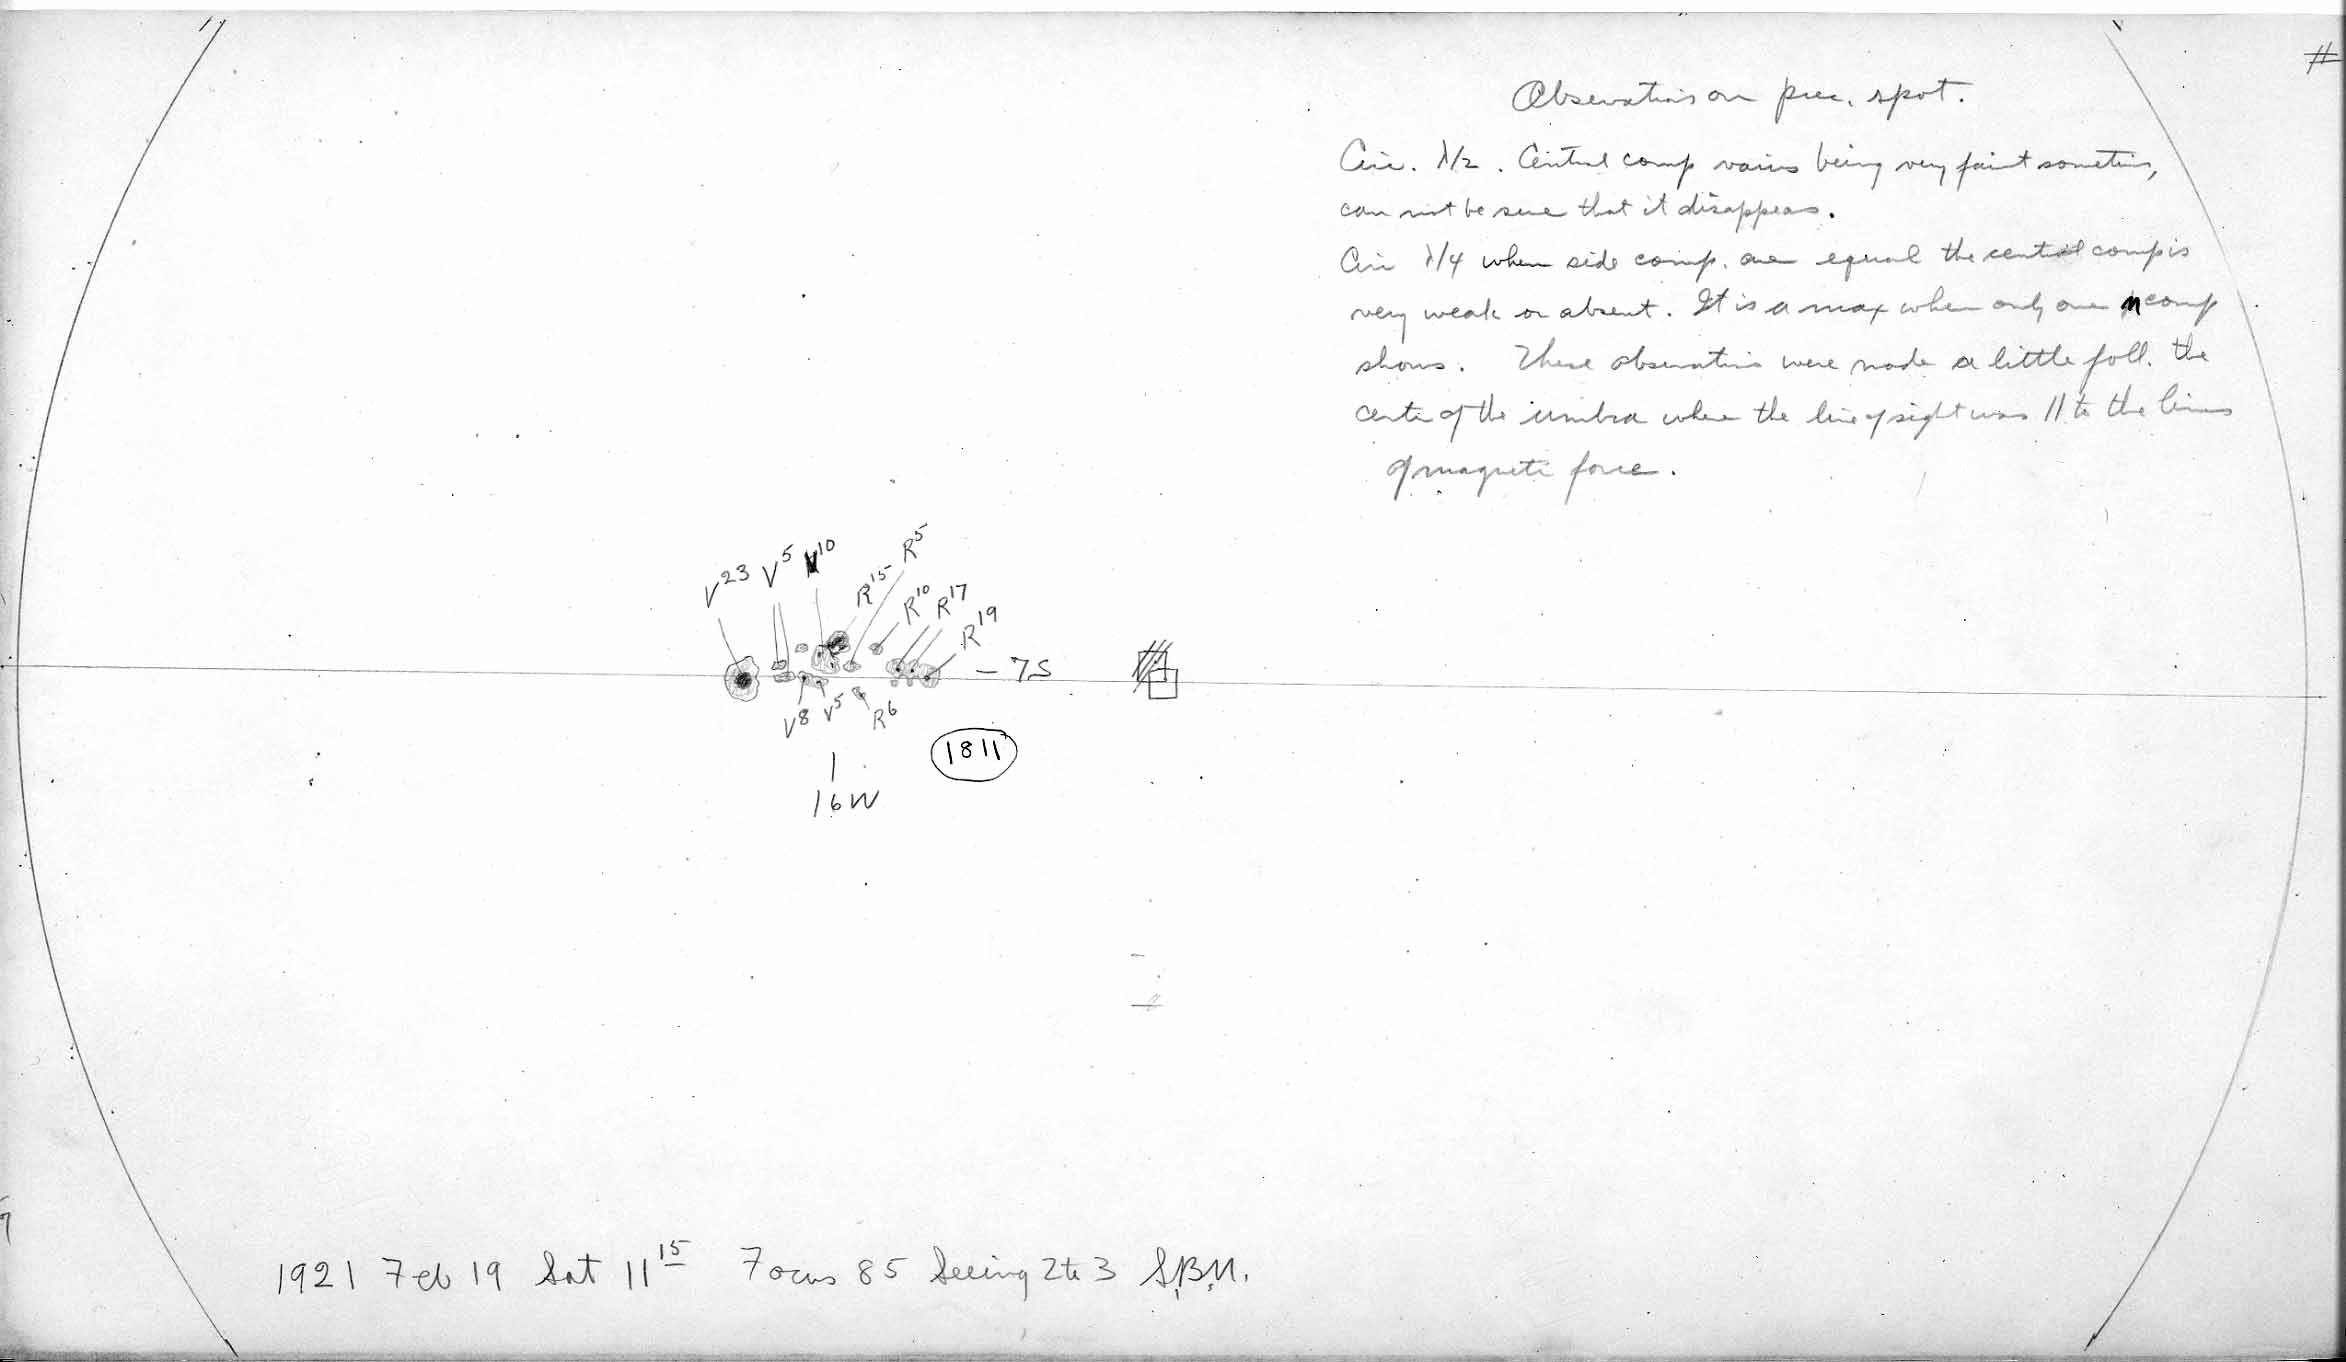 #
Observations on prec. spot.
Circ. λ/2. Central comp varies being very faint sometimes,
can not be sure that it disappears.
Circ λ/4 when side comp. are equal the central comp is
very weak or absent. It is a max when only one n comp
shows. These observations were made a little foll. the
center of the umbra where the line of sight was || to the lines
of magnetic force.
V23 V5 V10 R15 R5
R10 R17
R19
-7S
V8 V5 R6
1811
16W
1921 Feb 19 Sat 11 15 Focus 85 Seeing 2 to 3 S.B.N.